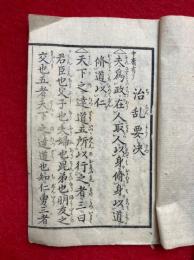 治乱要决
夫為政在人取人以身脩身以道
脩道以仁
天下之達道五所以行之者三曰
君臣也父子也夫婦也昆弟也朋友之
交也五者天下之達道也知仁勇三者